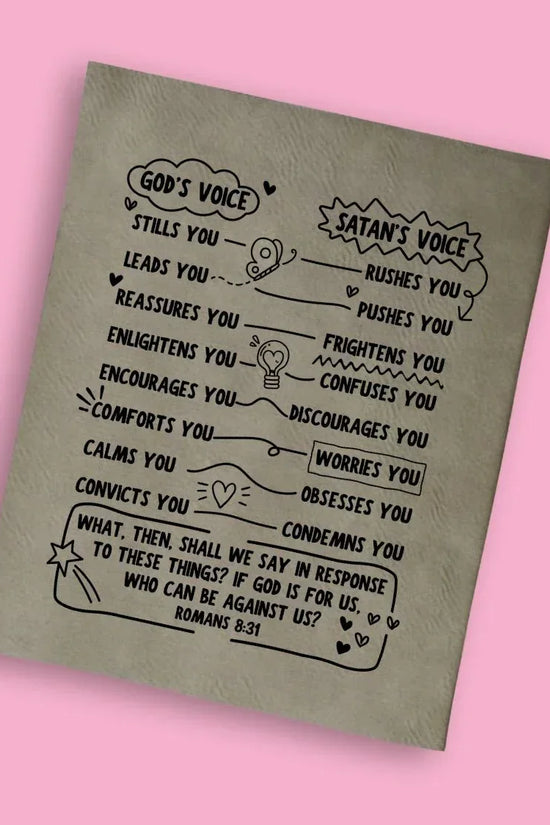 GOD'S VOICE
SATAN'S VOICE
STILLS YOU
RUSHES YOU
LEADS YOU
PUSHES YOU
REASSURES YOU
FRIGHTENS YOU
ENLIGHTENS YOU
CONFUSES YOU
ENCOURAGES YOU
DISCOURAGES YOU
COMFORTS YOU
WORRIES YOU
CALMS YOU
OBSESSES YOU
CONVICTS YOU
CONDEMNS YOU
WHAT, THEN, SHALL WE SAY IN RESPONSE
TO THESE THINGS? IF GOD IS FOR US,
WHO CAN BE AGAINST US?
ROMANS 8:31